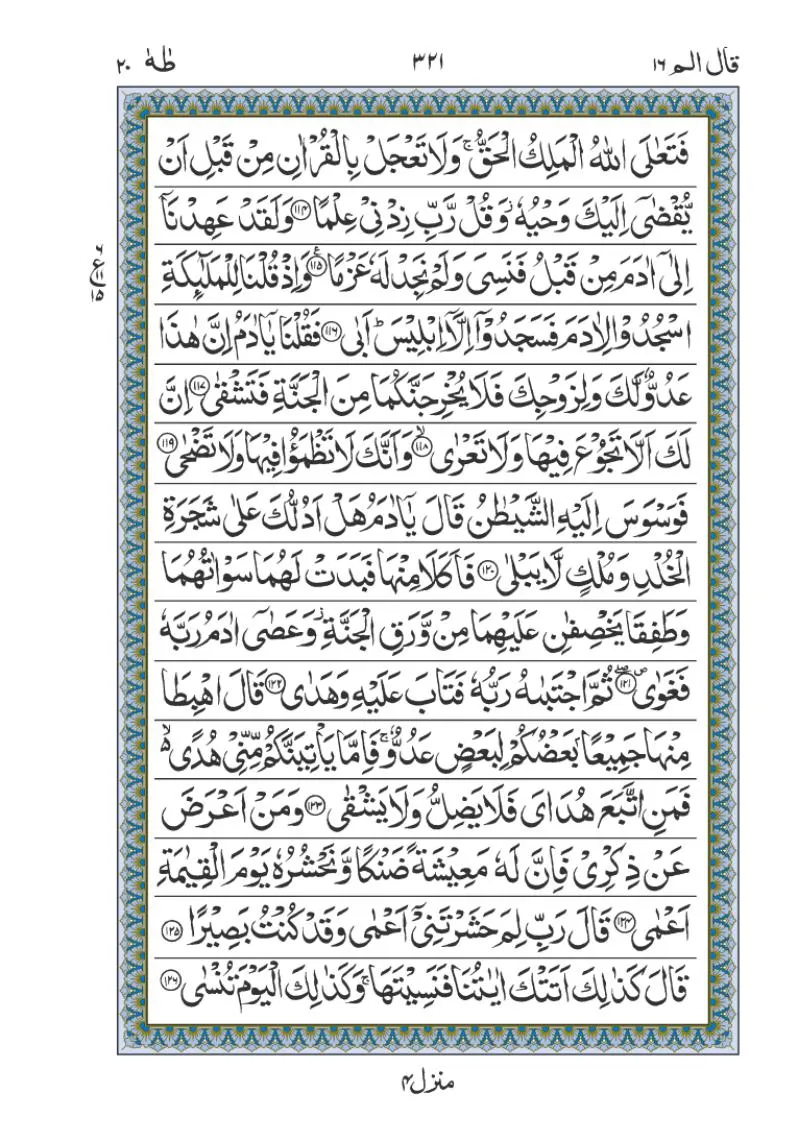 قال الم ١٦
٣٢١
طٰهٰ ٢٠
فَتَعٰلَى اللّٰهُ الْمَلِكُ الْحَقُّ ۚ وَلَا تَعْجَلْ بِالْقُرْاٰنِ مِنْ قَبْلِ اَنْ
يُّقْضٰۤى اِلَيْكَ وَحْيُهٗ ۫ وَقُلْ رَّبِّ زِدْنِىْ عِلْمًا ﴿۱۱۴﴾ وَلَقَدْ عَهِدْنَاۤ
اِلٰۤى اٰدَمَ مِنْ قَبْلُ فَنَسِىَ وَلَمْ نَجِدْ لَهٗ عَزْمًا ﴿۱۱۵﴾ۧ وَاِذْ قُلْنَا لِلْمَلٰٓئِكَةِ
اسْجُدُوْا لِاٰدَمَ فَسَجَدُوْۤا اِلَّاۤ اِبْلِيْسَ ؕ اَبٰى ﴿۱۱۶﴾ فَقُلْنَا يٰۤاٰدَمُ اِنَّ هٰذَا
عَدُوٌّ لَّكَ وَلِزَوْجِكَ فَلَا يُخْرِجَنَّكُمَا مِنَ الْجَنَّةِ فَتَشْقٰى ﴿۱۱۷﴾ اِنَّ
لَكَ اَلَّا تَجُوْعَ فِيْهَا وَلَا تَعْرٰى ﴿۱۱۸﴾ۙ وَاَنَّكَ لَا تَظْمَؤُا فِيْهَا وَلَا تَضْحٰى ﴿۱۱۹﴾
فَوَسْوَسَ اِلَيْهِ الشَّيْطٰنُ قَالَ يٰۤاٰدَمُ هَلْ اَدُلُّكَ عَلٰى شَجَرَةِ
الْخُلْدِ وَمُلْكٍ لَّا يَبْلٰى ﴿۱۲۰﴾ فَاَكَلَا مِنْهَا فَبَدَتْ لَهُمَا سَوْاٰتُهُمَا
وَطَفِقَا يَخْصِفٰنِ عَلَيْهِمَا مِنْ وَّرَقِ الْجَنَّةِ ۫ وَعَصٰۤى اٰدَمُ رَبَّهٗ
فَغَوٰى ﴿۱۲۱﴾۪ۖ ثُمَّ اجْتَبٰىهُ رَبُّهٗ فَتَابَ عَلَيْهِ وَهَدٰى ﴿۱۲۲﴾ قَالَ اهْبِطَا
مِنْهَا جَمِيْعًا بَعْضُكُمْ لِبَعْضٍ عَدُوٌّ ۚ فَاِمَّا يَاْتِيَنَّكُمْ مِّنِّىْ هُدًى ۙ۬
فَمَنِ اتَّبَعَ هُدَاىَ فَلَا يَضِلُّ وَلَا يَشْقٰى ﴿۱۲۳﴾ وَمَنْ اَعْرَضَ
عَنْ ذِكْرِىْ فَاِنَّ لَهٗ مَعِيْشَةً ضَنْكًا وَّنَحْشُرُهٗ يَوْمَ الْقِيٰمَةِ
اَعْمٰى ﴿۱۲۴﴾ قَالَ رَبِّ لِمَ حَشَرْتَنِىْۤ اَعْمٰى وَقَدْ كُنْتُ بَصِيْرًا ﴿۱۲۵﴾
قَالَ كَذٰلِكَ اَتَتْكَ اٰيٰتُنَا فَنَسِيْتَهَا ۚ وَكَذٰلِكَ الْيَوْمَ تُنْسٰى ﴿۱۲۶﴾
منزل ۴